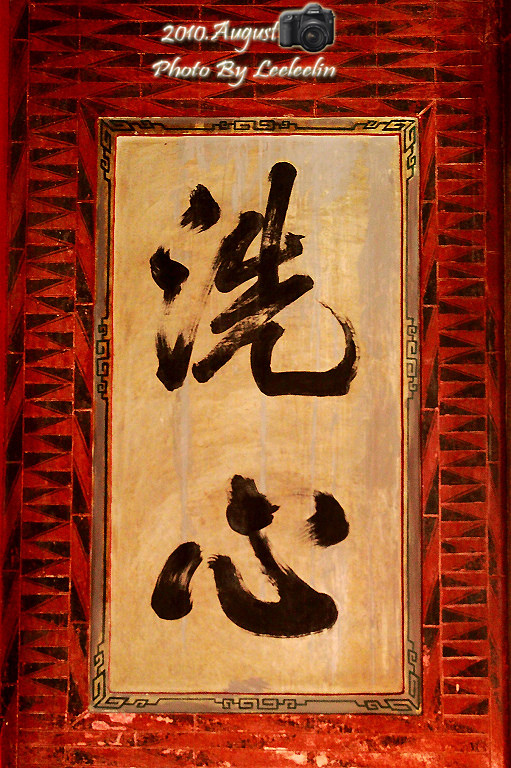 2010.August
Photo By Leeleelin
洗
心